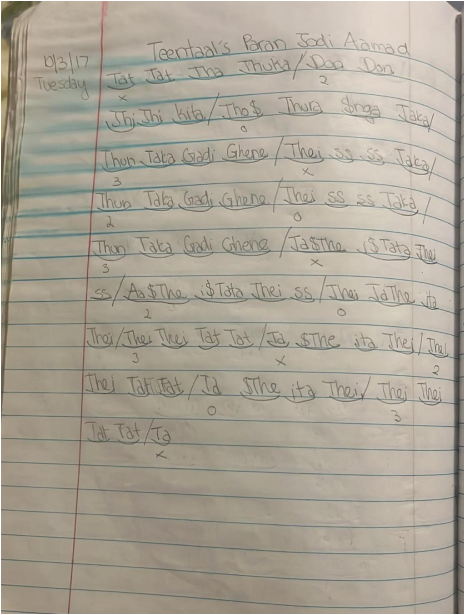 10/3/17
Tuesday
Teentaal's Paran Jodi Aamad
Tat Tat Jha Jhuka / Don Don
x 2
Jhi Jhi kita / Jho$ Thura $nga Taka /
0
Thun Taka Gadi Ghene / Thei ss ss Taka /
3 x
Thun Taka Gadi Ghene / Thei ss ss Taka /
2 0
Thun Taka Gadi Ghene / Ta$The i$Tata Thei
3 x
ss / Aa$The i$Tata Thei ss / Thei TaThe ita
2 0
Thei / Thei Thei Tat Tat / Ta $The ita Thei / Thei
3 x 2
Thei Tat Tat / Ta $The ita Thei / Thei Thei
0 3
Tat Tat / Ta
x